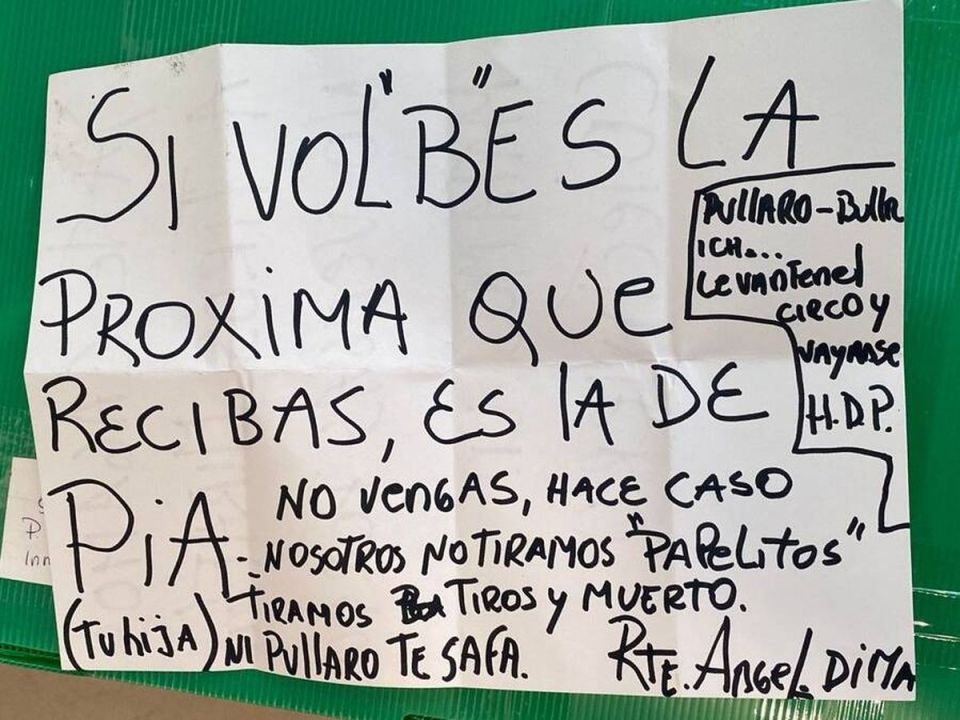 SI VOL"B"ES LA
PROXIMA QUE
RECIBAS, ES LA DE
PiA-
(tu hija)
NO VENGAS, HACE CASO
NOSOTROS NO TIRAMOS "PAPELITOS"
TIRAMOS TIROS y MUERTO.
NI PULLARO TE SAFA.
RTE. ANGEL DIMA
PULLARO-BULLR
ICH...
LEVANTEN EL
CIRCO Y
VAYANSE
H.D.P.